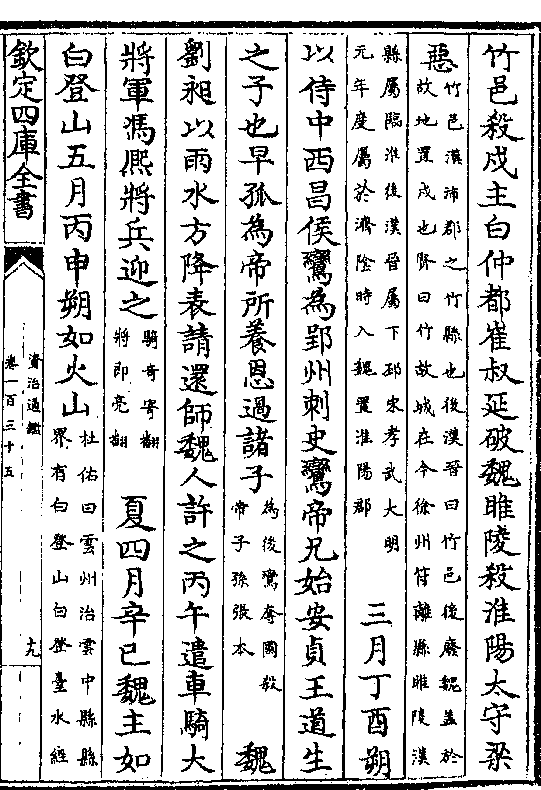 竹邑殺戍主白仲都崔叔延破魏睢陵殺淮陽太守梁
惡竹邑漢沛郡之竹縣也後漢晉曰竹邑後廢魏蓋於
故地置戍也賢曰竹故城在今徐州符離縣睢陵漢
縣屬臨淮後漢晉屬下邳宋孝武大明
元年度屬於濟陰時入魏置淮陽郡 三月丁酉朔
以侍中西昌侯鸞為郢州刺史鸞帝兄始安貞王道生
之子也早孤為帝所養恩過諸子為後鸞奪國殺
帝子孫張本 魏
劉昶以雨水方降表請還師魏人許之丙午遣車騎大
將軍馮熙將兵迎之騎奇寄翻
將即亮翻 夏四月辛巳魏主如
白登山五月丙申朔如火山杜佑曰雲州治雲中縣縣
界有白登山白登臺水經
欽定四庫全書
資治通鑑
卷一百三十五
十九